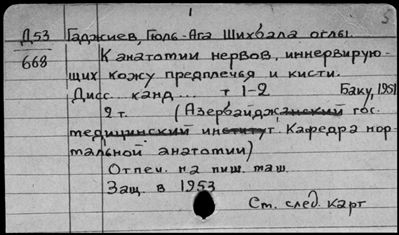 1
5
Д53 Гаджиев, Гюль-Ага Шихбала оглы.
668 К анатомии нервов, иннервирую-
щих кожу предплечья и кисти.
Дисс. канд.... т 1-2 Баку, 1951
2 т. (Азербайджанский гос.
медицинский институт. Кафедра нор-
мальной анатомии)
Отпеч. на пиш. маш.
Защ. в 1953
Ст. след. карт